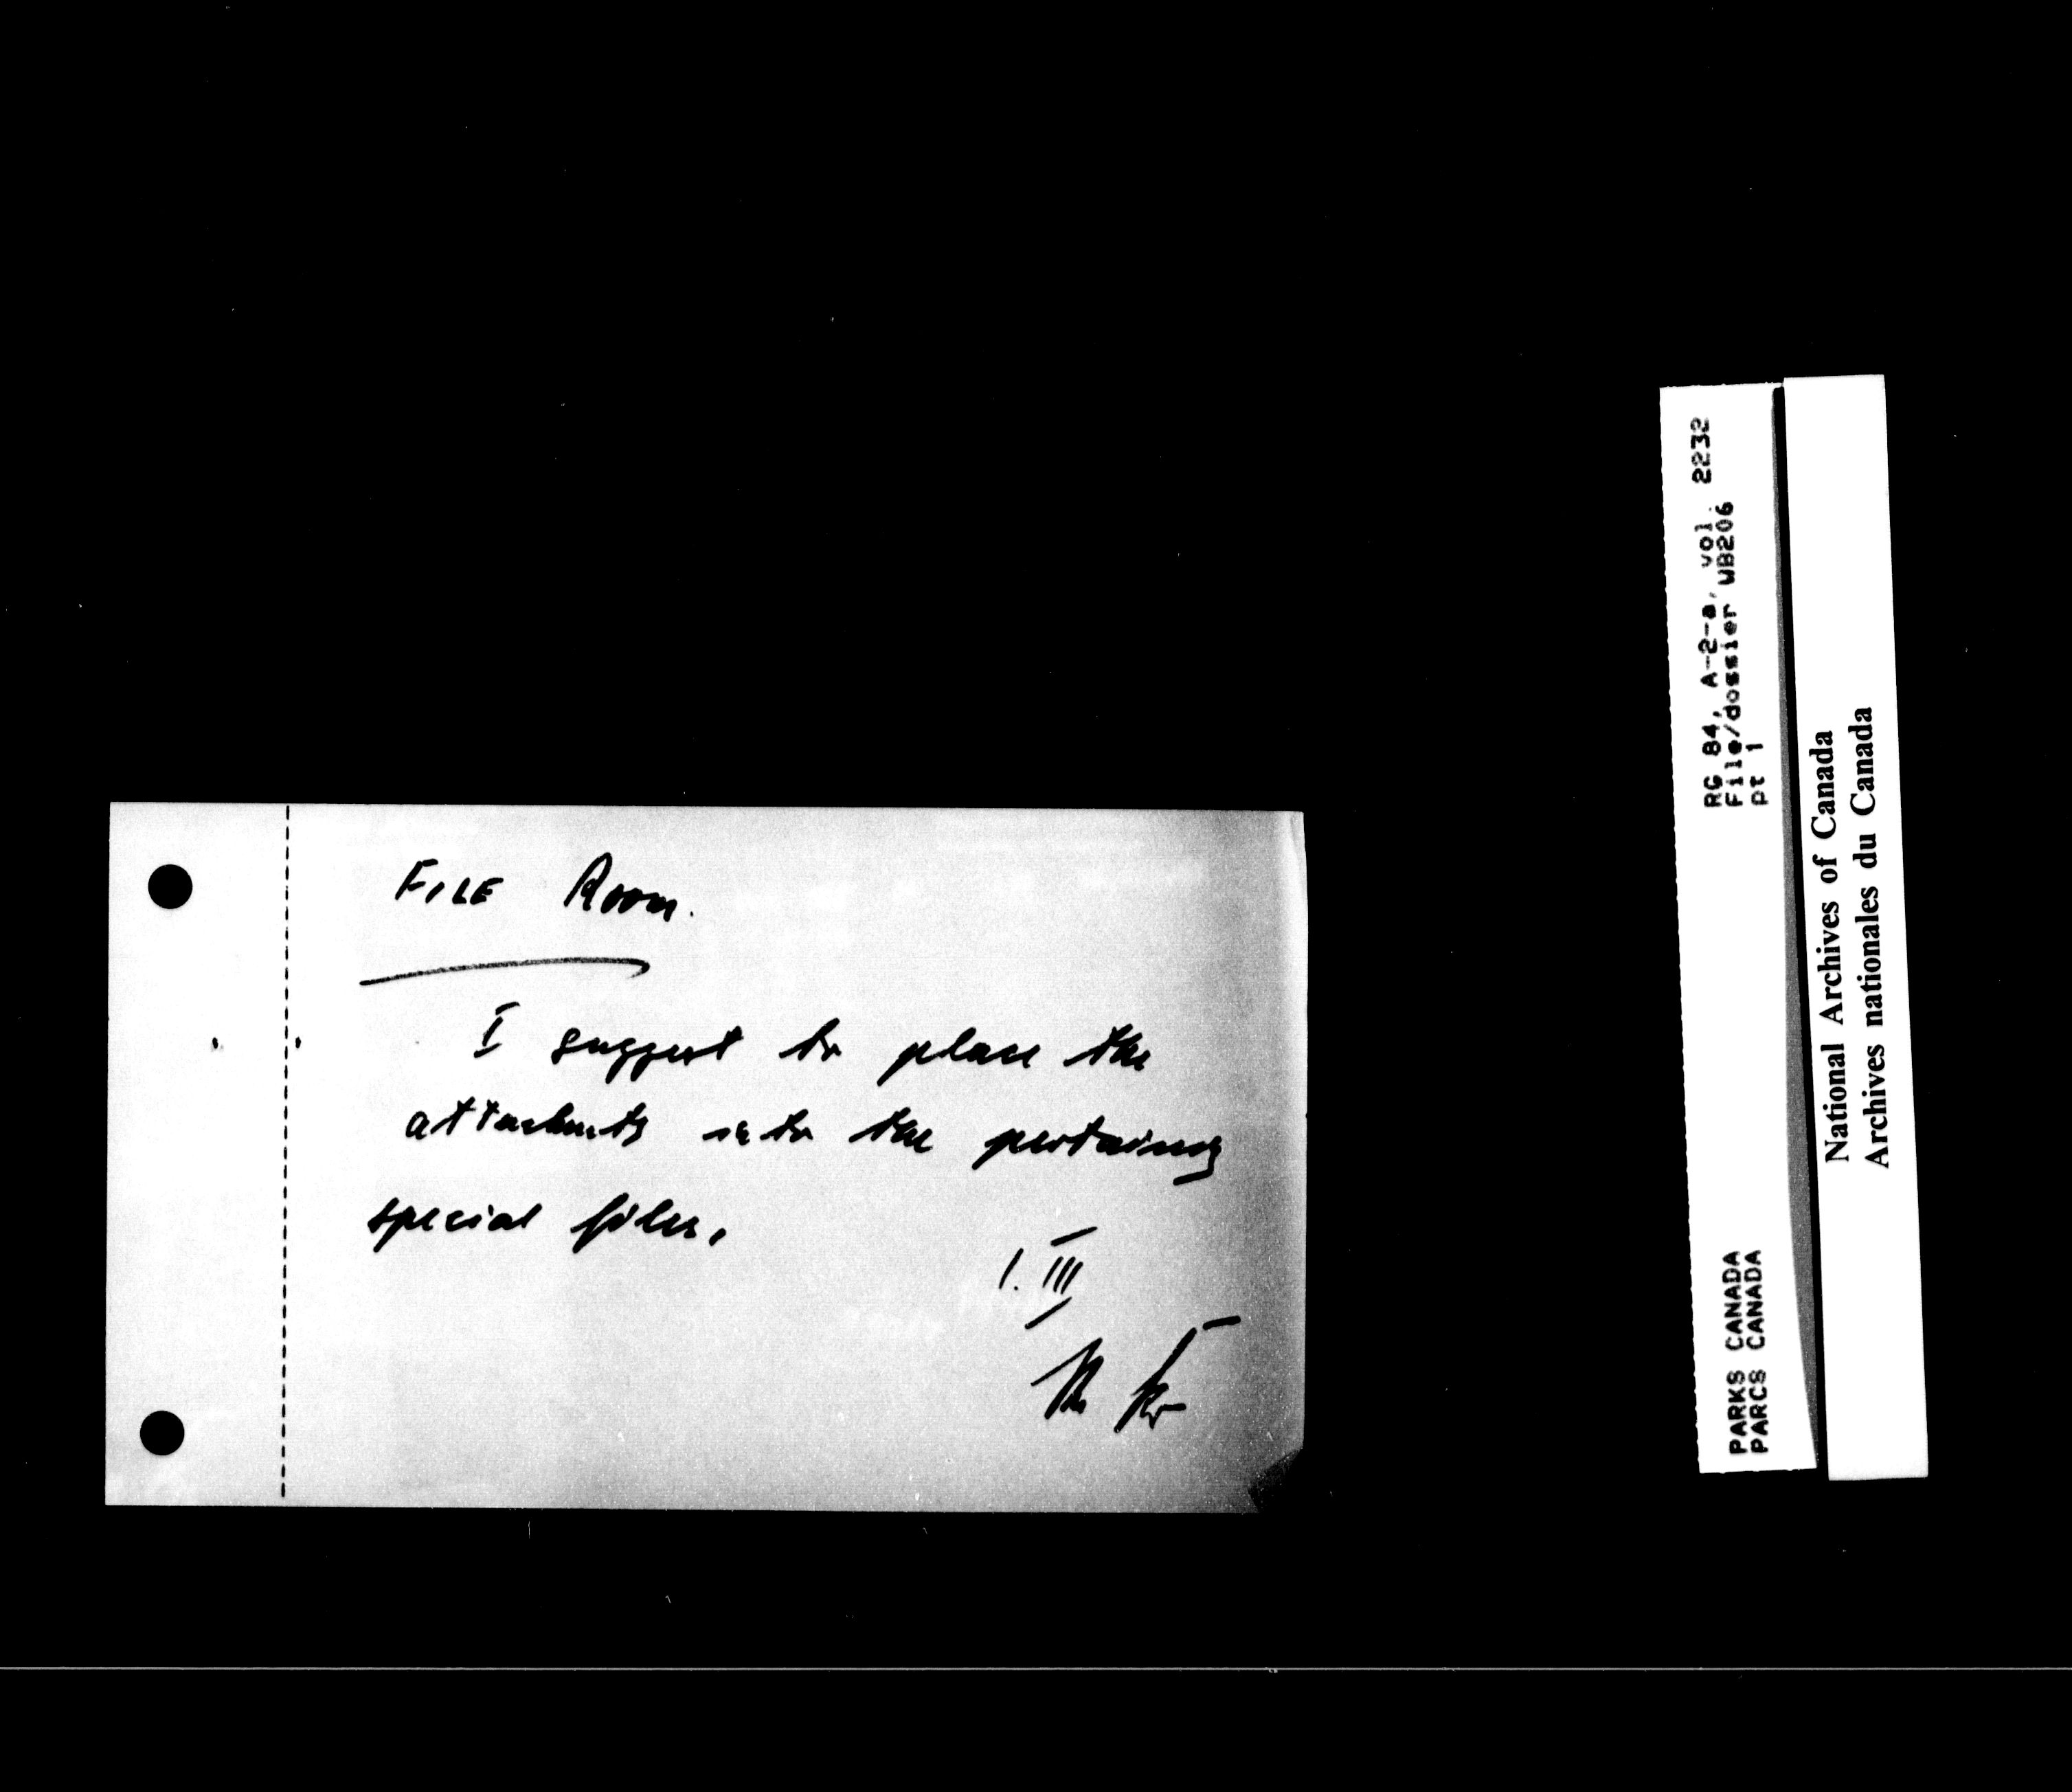 FILE Room.
I suggest to place the
attachmts into the pertaining
special files.
1. III
RG 84, A-2-a, vol. 2232
File/dossier WB206
pt 1
PARKS CANADA
PARCS CANADA
National Archives of Canada
Archives nationales du Canada